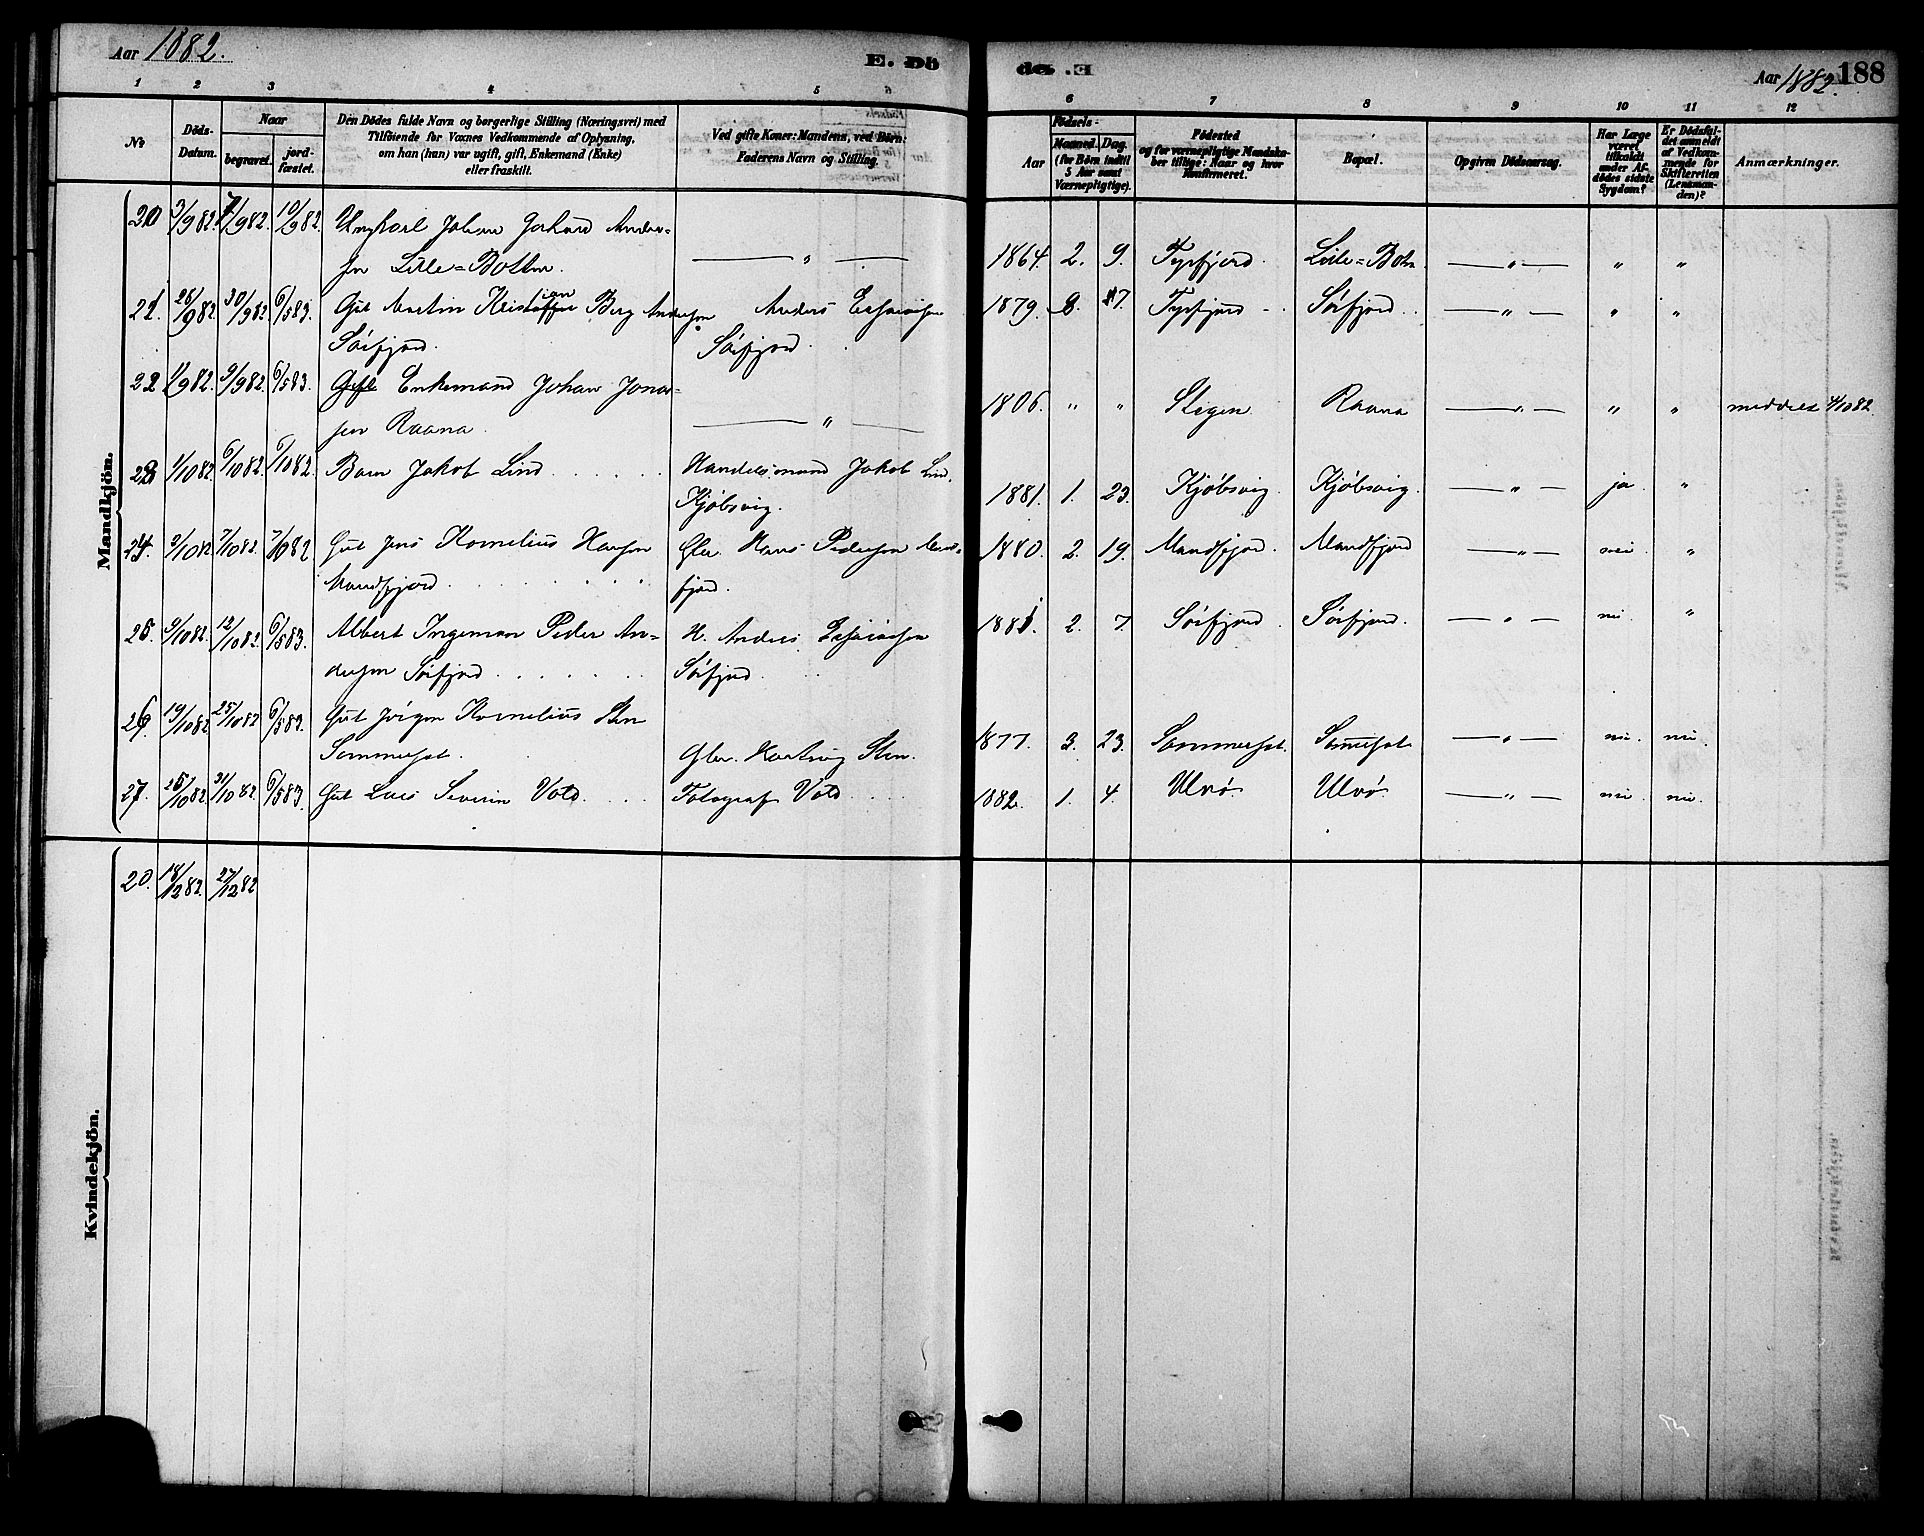 Aar 1882.
E. Dö
de. E
Aar 1882. 188
1 2 3 4 5 6
6 7 8 9 10 11 12
No
Döds-Datum.
Naar
begravet.
jord-fæstet.
Den Dödes fulde Navn og borgerlige Stilling (Næringsvei) med
Tilföiende for Voxnes Vedkommende af Oplysning,
om han (han) var ugift, gift, Enkemand (Enke)
eller fraskilt.
Ved gifte Koner: Mandens, ved Börn:
Faderens Navn og Stilling.
Födsels-
Aar
Maaned. Dag.
(for Börn indtil
5 Aar samt
Værnepligtige).
Födested
og for værnepligtige Mandska-
ber tillige: Naar og hvor
konfirmeret.
Bopæl.
Opgiven Dödsaarsag.
Har Læge
været
tilkaldt
under Af-
dödes sidste
Sygdom?
Er Dödsfal-
det anmeldt
af Vedkom-
mende for
Skifteretten
(Lensman-
den)?
Anmærkninger.
Mandkjön.
20 3/9 82. 7/9 82. 10/9 82. Ungkarl Johan Gerhard Ander-
sen Lille=Botten. — " — 1864. 2. 9. Tysfjord. Lille=Botn — " — " "
21. 26/9 82. 30/9 82. 6/5 83. Gut Martin Kristian Berg Andersen Anders Esaiasen 1879. 8. 7. Tysfjord Sörfjord — " — " "
Sörfjord. Sörfjord.
22 1/9 82. 9/9 82. 6/5 83. Enkemand Johan Jonas-
sen Raana. — " — 1806. " " Stegen Raana — " — " " meddelt 4/10 82.
23 1/10 82. 6/10 82. 6/10 82. Barn Jakob Lind Handelsmand Jakob Lind,
Kjöbsvig. 1881. 1. 23. Kjöbsvig. Kjöbsvig. — " — ja. "
24. 2/10 82 7/10 82. 7/10 82 Gut Jens Kornelius Hansen Hans Pedersen Mand- 1880. 2. 19. Mandfjord. Mandfjord — " — nei. "
Mandfjord fjord.
25. 9/10 82. 12/10 82. 6/5 83. Albert Ingeman Peder An- Anders Esaiasen 1881. 2. 7. Sörfjord. Sörfjord. — " — nei. "
dersen Sörfjord Sörfjord
26. 19/10 82. 25/10 82 6/5 83. Gut Jörgen Kornelius Sten
Sommerset. Hartvig Sten. 1877. 3. 23. Sommerset. Sommerset — " — nei. nei.
27. 25/10 82. 31/10 82. 6/5 83. Gut Lars Severin Vold Fotograf Vold 1882. 1. 4. Ulvö. Ulvö. — " — nei. nei.
Kvindekjön.
20. 18/12 82. 27/12 82